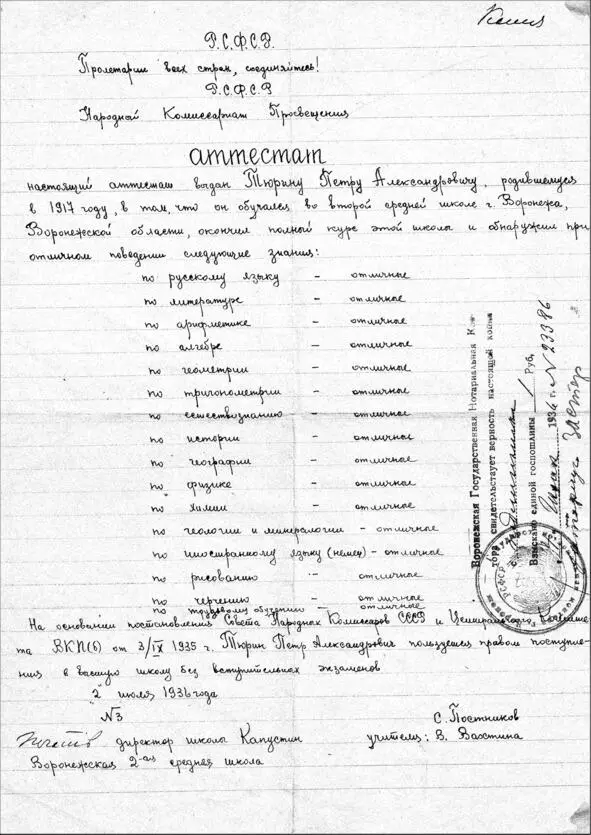 Копия
Р.С.Ф.С.Р.
Пролетарии всех стран, соединяйтесь!
Р.С.Ф.С.Р
Народной Комиссариат Просвещения
аттестат
настоящий аттестат выдан Тюрину Петру Александровичу, родившемуся
в 1917 году, в том, что он обучался во второй средней школе г. Воронежа,
Воронежской области, окончил полный курс этой школы и обнаружил при
отличном поведении следующие знания:
по русскому языку – отличные
по литературе – отличные
по арифметике – отличные
по алгебре – отличные
по геометрии – отличные
по тригонометрии – отличные
по естествознанию – отличные
по истории – отличные
по географии – отличные
по физике – отличные
по химии – отличные
по геологии и минералогии – отличные
по иностранному языку (немец) – отличные
по рисованию – отличные
по черчению – отличные
по трудовому обучению – отличные
На основании постановления Совета Народных Комиссаров СССР и Центрального Комите
та ВКП(б) от 3/IX 1935 г. Тюрин Петр Александрович пользуется правом поступле
ния в высшую школу без вступительных экзаменов
2 июля 1936 года
№3
С. Постников
директор школы Капустин учителя: В. Вахтина
Воронежская 2-ая средняя школа
Воронежская Государственная Нотариальная Кон
тора свидетельствует верность настоящей копии
Взыскано единой госпошлины 1 Руб.
193 г. N 23386